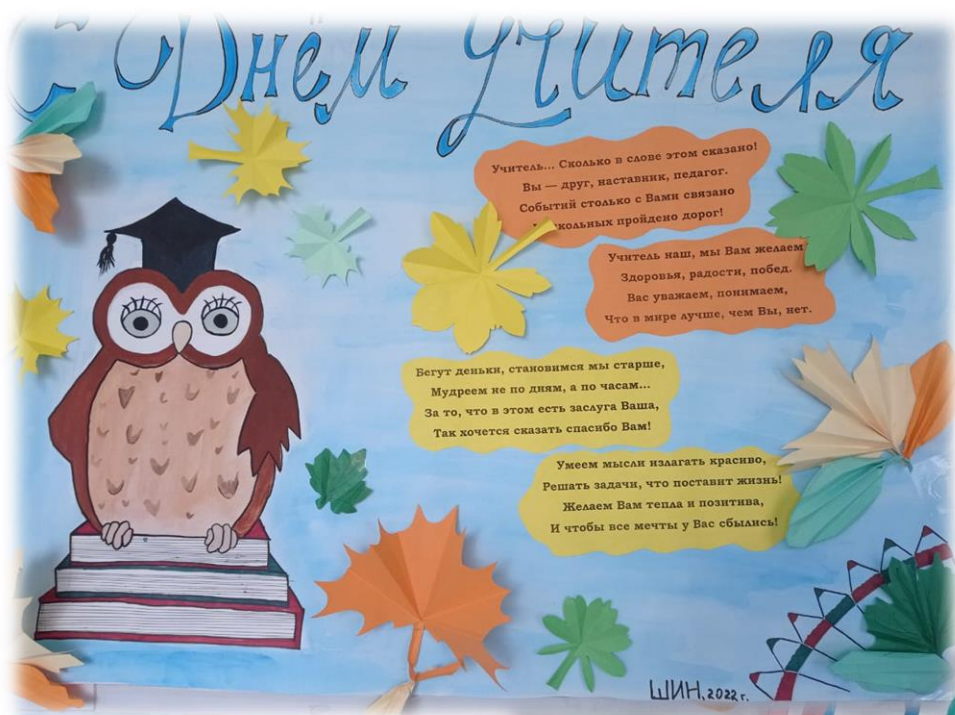 С Днём Учителя
Учитель... Сколько в слове этом сказано!
Вы — друг, наставник, педагог.
Событий столько с Вами связано
школьных пройдено дорог!
Учитель наш, мы Вам желаем
Здоровья, радости, побед.
Вас уважаем, понимаем,
Что в мире лучше, чем Вы, нет.
Бегут деньки, становимся мы старше,
Мудреем не по дням, а по часам...
За то, что в этом есть заслуга Ваша,
Так хочется сказать спасибо Вам!
Умеем мысли излагать красиво,
Решать задачи, что поставит жизнь!
Желаем Вам тепла и позитива,
И чтобы все мечты у Вас сбылись!
ШИН, 2022 г.